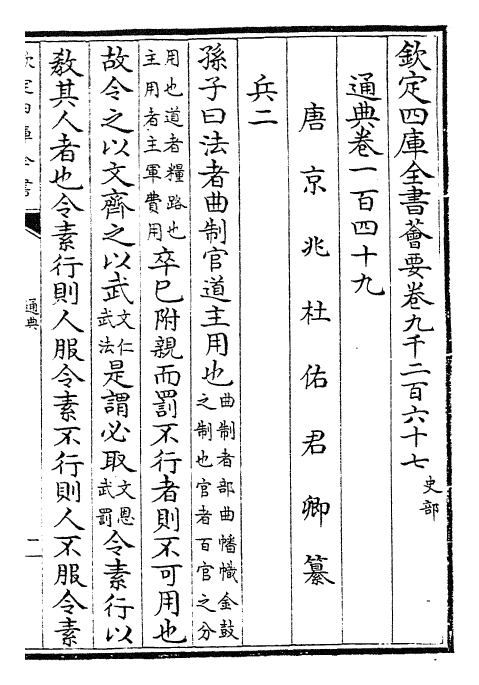 欽定四庫全書薈要卷九千二百六十七 史部
通典卷一百四十九
唐京兆杜佑君卿纂
兵二
孫子曰法者曲制官道主用也曲制者部曲幡幟金鼓之制也官者百官之分
用也道者糧路也主用者主軍費用卒巳附親而罰不行者則不可用也
故令之以文齊之以武文仁武法是謂必取文恩武罰令素行以
敎其人者也令素行則人服令素不行則人不服令素
通典
二